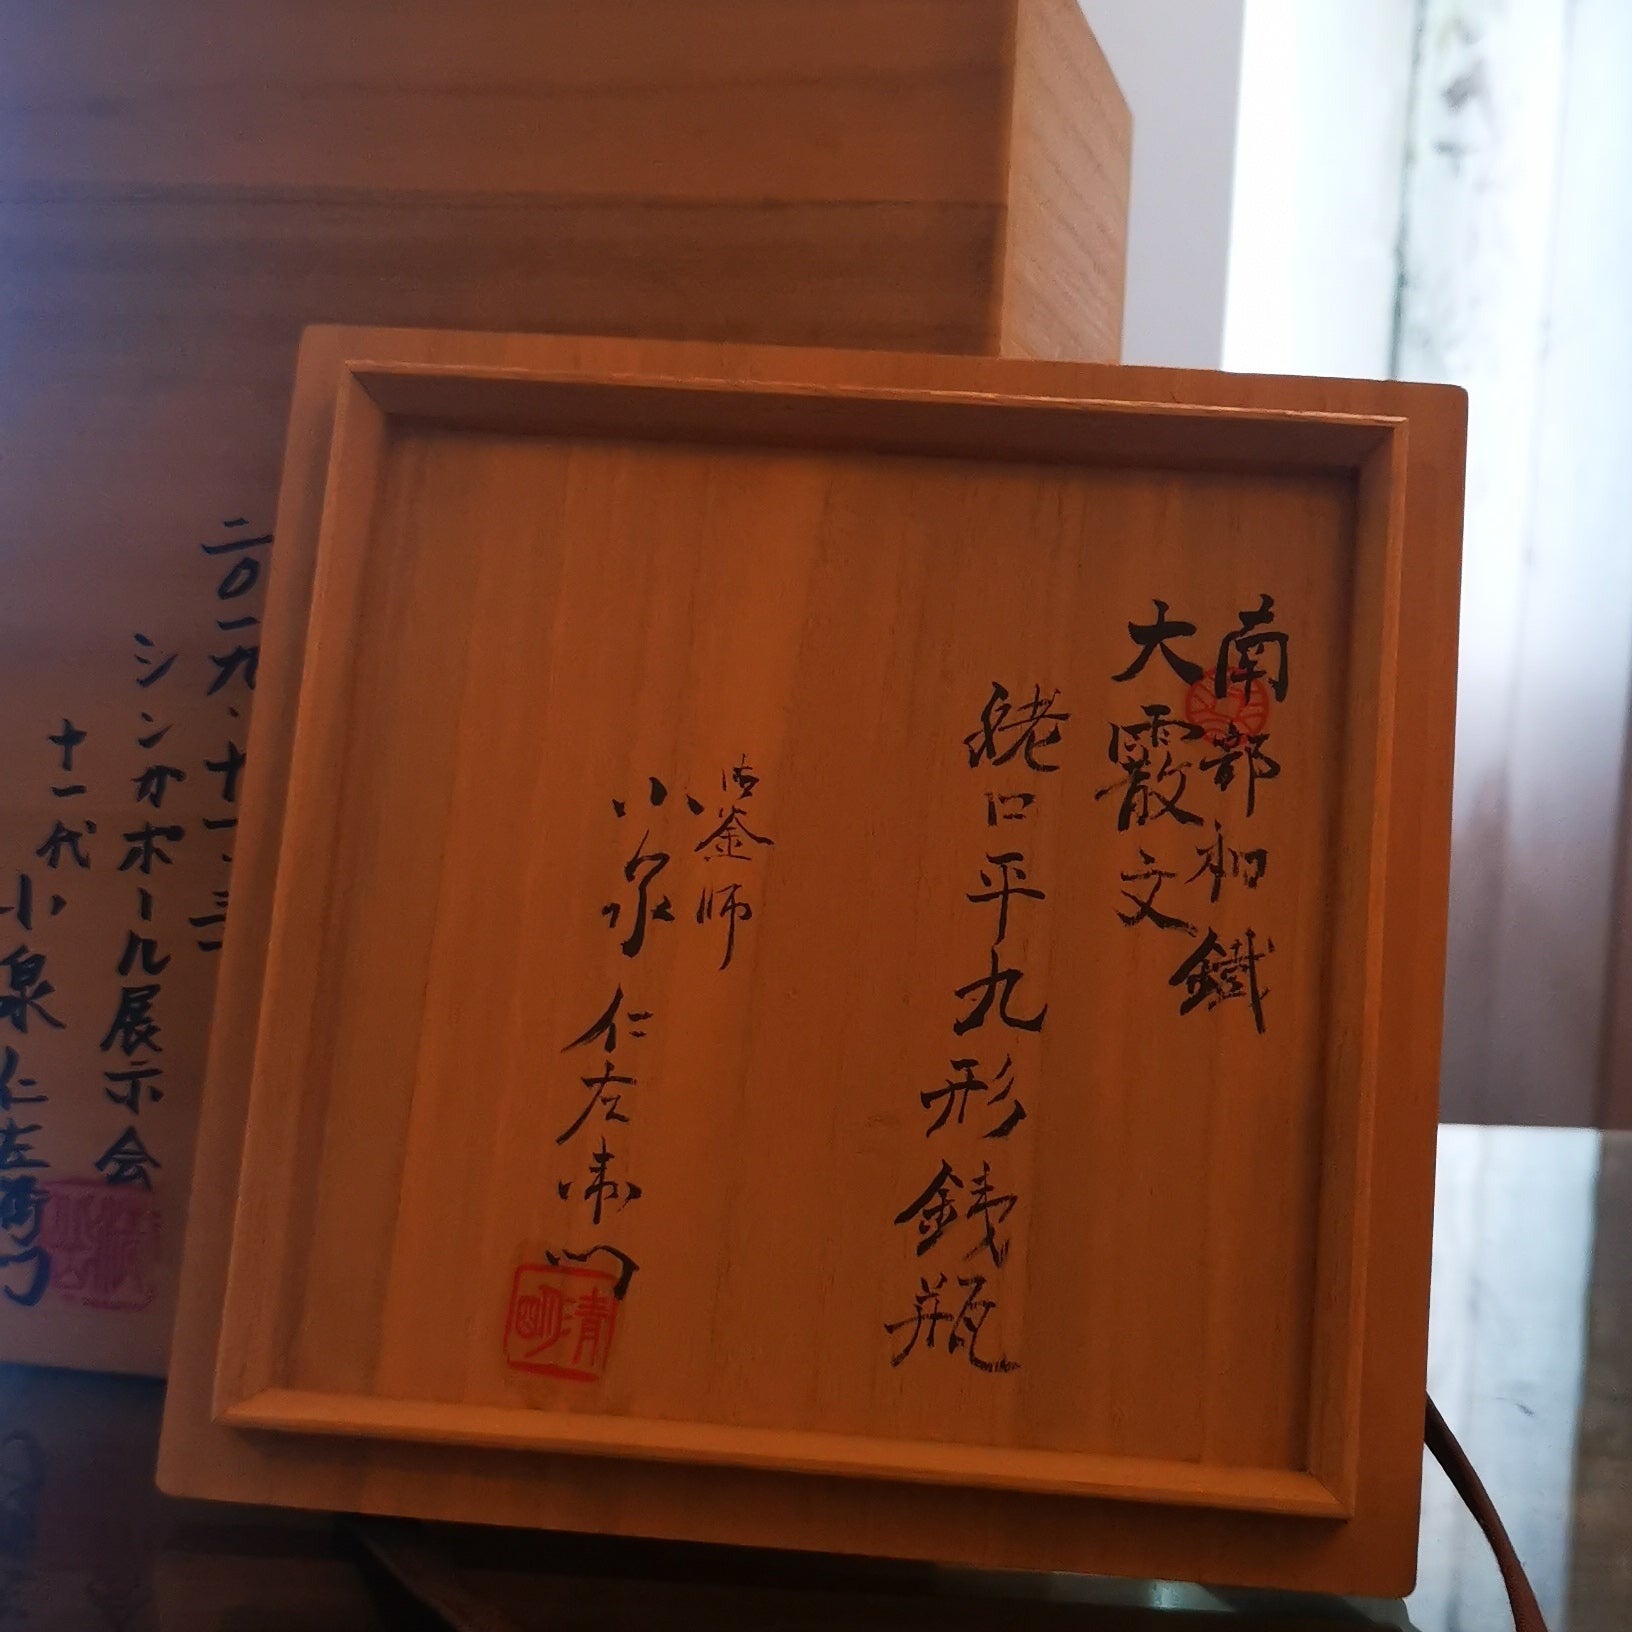 南部和鐵
大霰文
姥口平丸形鉄瓶
御釜師
小泉仁左衛門
清
二〇一九.十一.三
シンガポール展示会
十一代
小泉仁左衛門